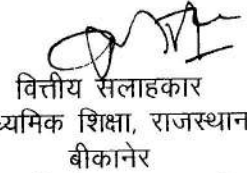 वित्तीय सलाहकार
ध्यमिक शिक्षा, राजस्थान
बीकानेर